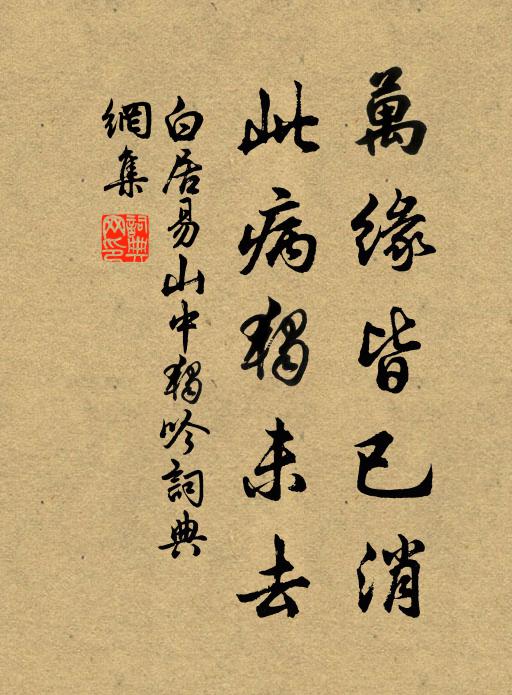 萬緣皆已消
此病獨未去
白居易山中獨吟詞典
網集
詞典网印